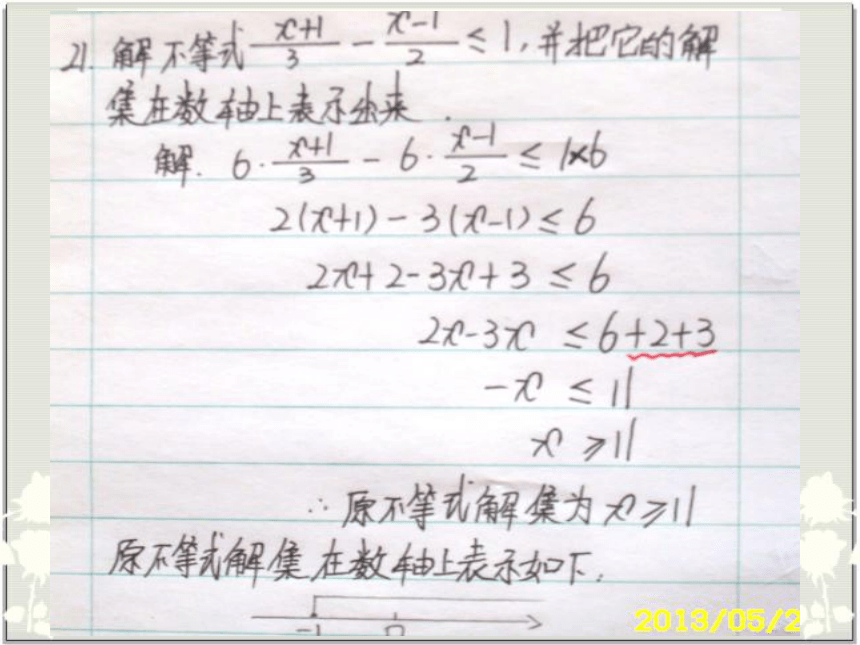 21. 解不等式 (x+1)/3 - (x-1)/2 ≤ 1, 并把它的解
集在数轴上表示出来.
解. 6·(x+1)/3 - 6·(x-1)/2 ≤ 1×6
2(x+1)-3(x-1)≤6
2x+2-3x+3≤6
2x-3x≤6+2+3
-x≤11
x≥11
∴原不等式解集为x≥11
原不等式解集在数轴上表示如下:
-1 0
2013/05/2